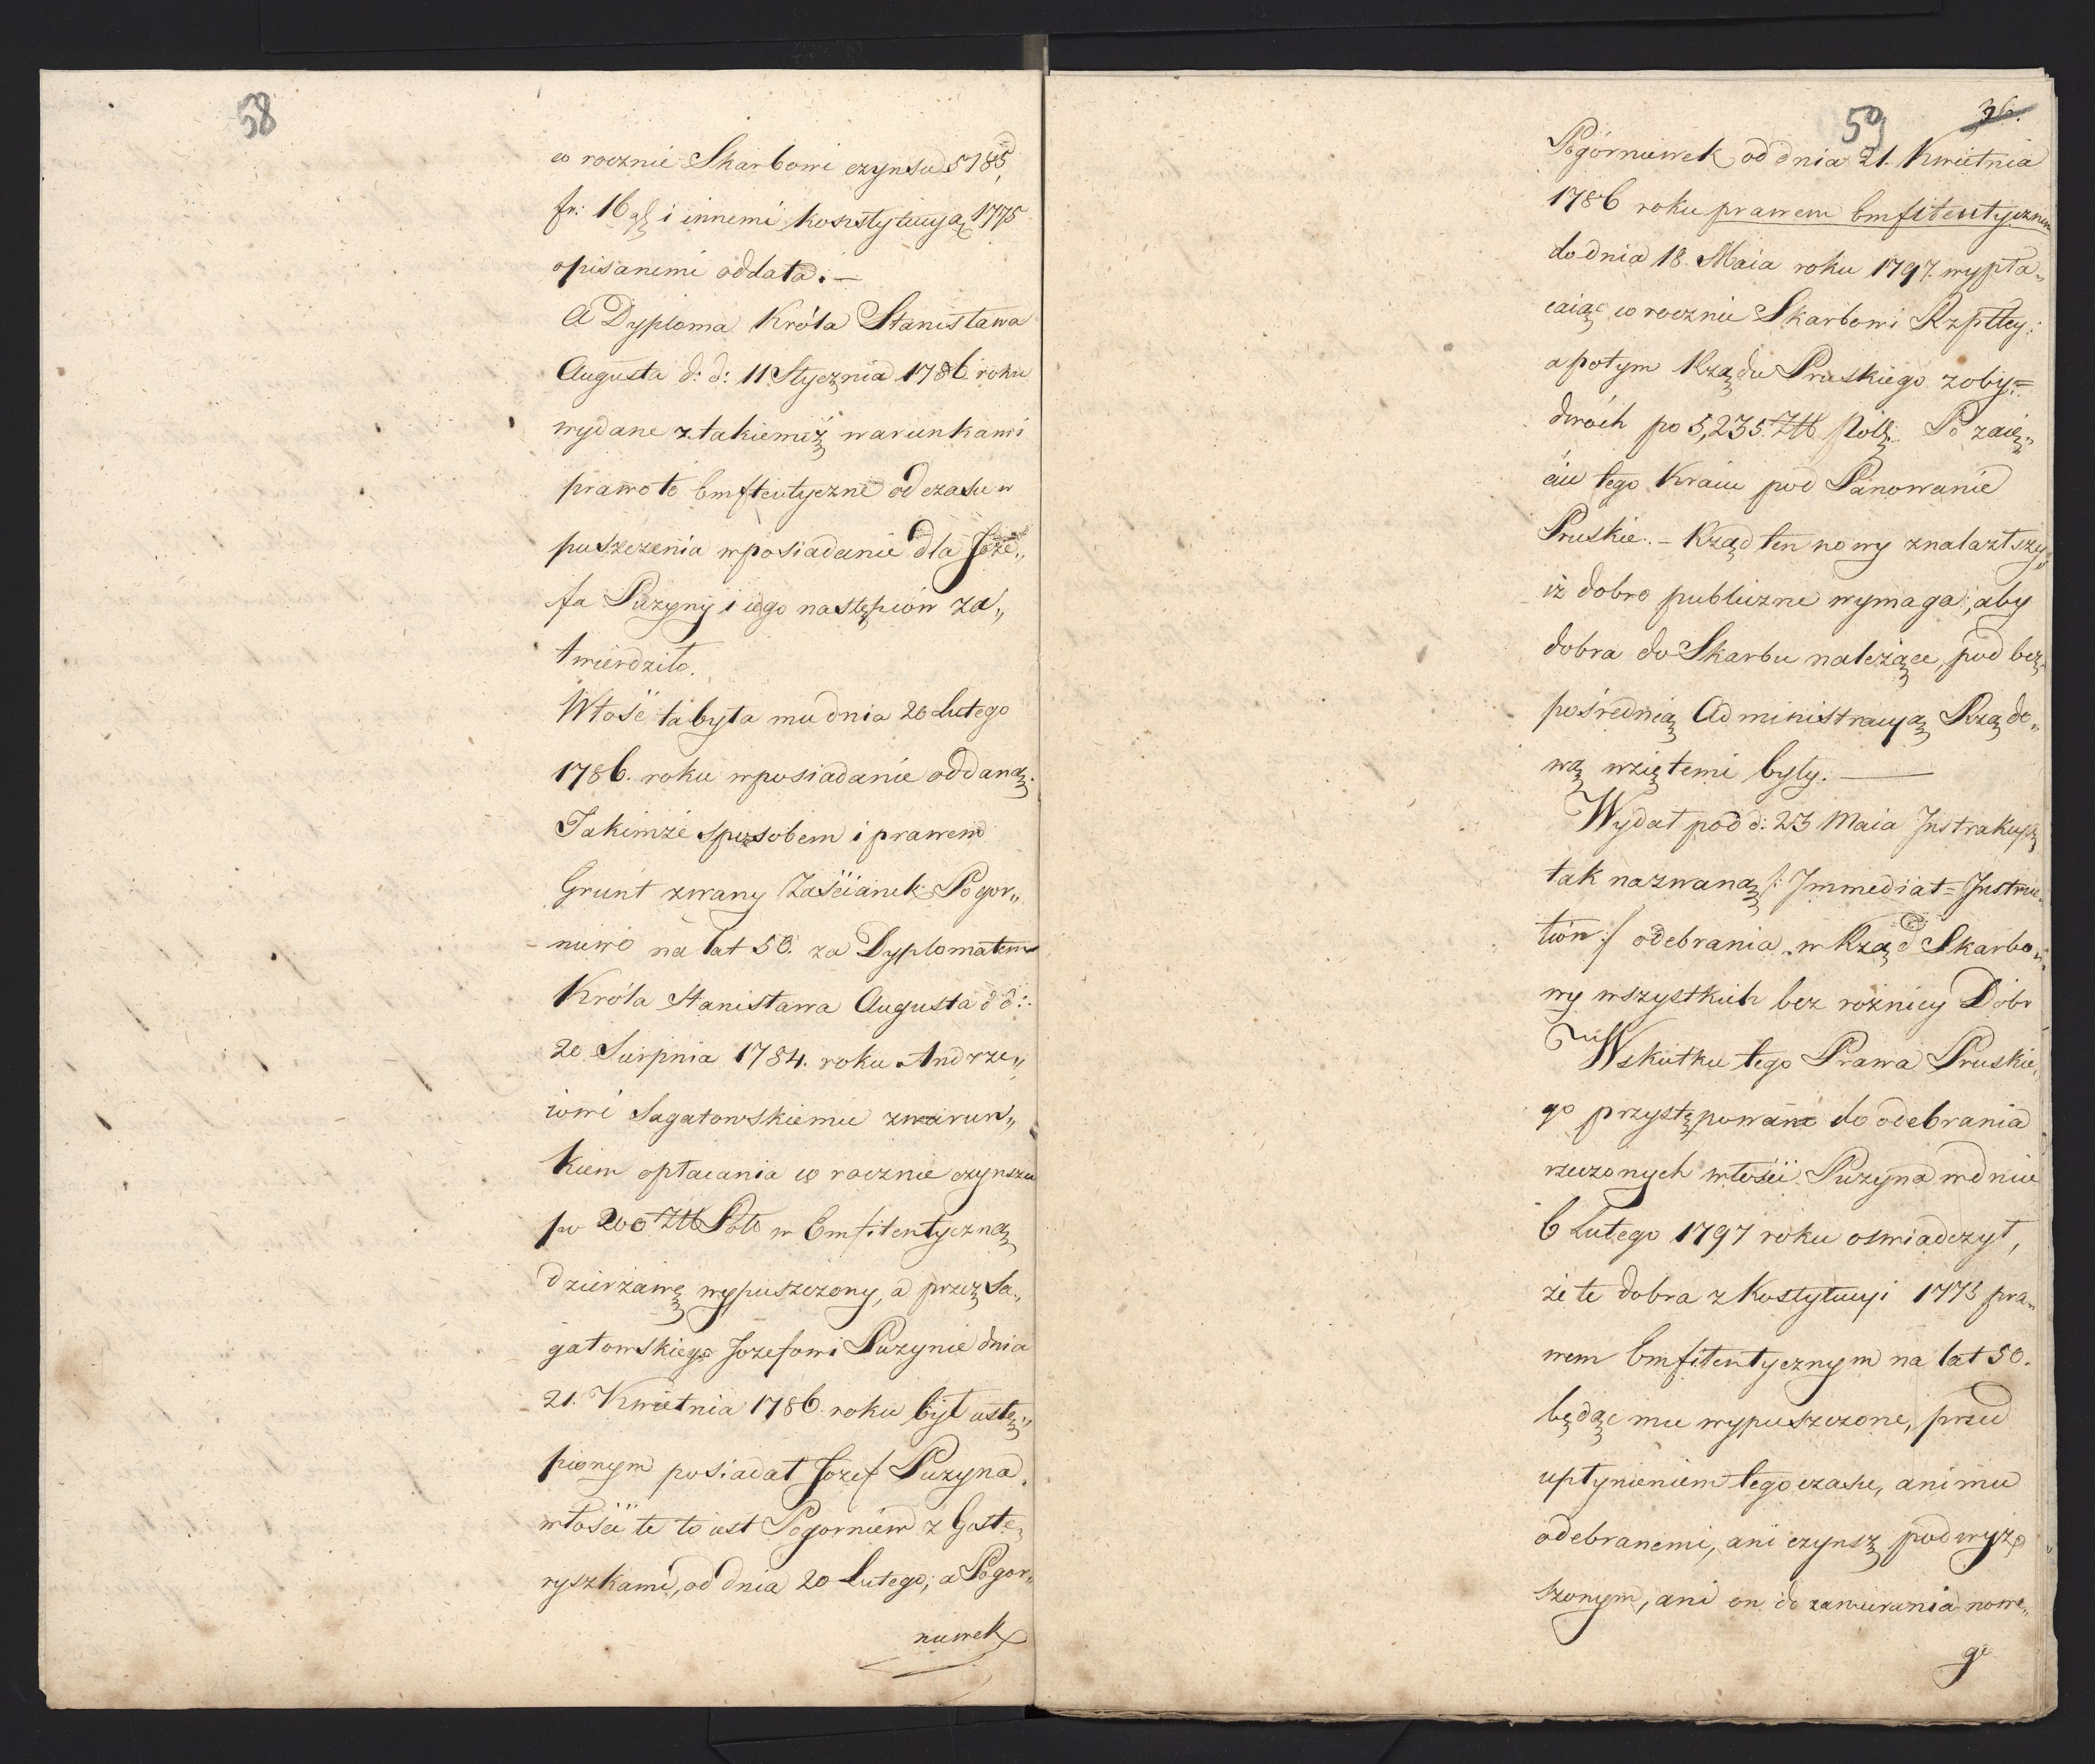 58
co rocznie Skarbowi czynsu 5185,
fr: 16 gl i innemi konstytucyą 1775
opisanemi oddała. —
A Dyploma Króla Stanisława
Augusta d: d: 11. Stycznia 1786. roku
wydane z takiemiż warunkami
prawo to Emfteutyczne od czasu w
puszczenia w posiadanie dla Joze„
fa Puzyny i iego następców za„
twierdziło.
Włość ta była mu dnia 20 Lutego
1786. roku w posiadanie oddaną.
Takimże sposobem i prawem
Grunt zwany Zaścianek Pogor„
niewo na lat 50. za Dyplomatem
Króla Stanisława Augusta d d:
20 Sierpnia 1784. roku Andrze„
iowi Sagatowskiemu z warun„
kiem opłacania co rocznie czynszu
po 200 Złł Pols w Emfitentyczną
dzierżawę wypuszczony, a przez Sa„
gatowskiego Jozefowi Puzynie dnia
21. Kwietnia 1786. roku był ustę„
pionym posiadał Jozef Puzyna.
włości te to iest Pogorniew z Goste„
ryszkami, od dnia 20 Lutego; a Pogor„
niewek
59
36.
Pogórniewek od dnia 21. Kwietnia
1786 roku prawem Emfiteutycznem
do dnia 18. Maia roku 1797. wypła„
caiąc co rocznie Skarbowi Rzpltey:
a potym Rządu Pruskiego z oby=
dwóch po 5,235. Złł Pols. Po zaię„
ciu tego Kraiu pod Panowanie
Pruskie. – Rząd ten nowy znalazłszy„
iż dobro publiczne wymaga, aby
dobra do Skarbu należące, pod bez„
pośrednią Administracyą Rządo„
wą wziętemi były. —
Wydał pod d: 23 Maia Jnstrukcyą
tak nazwaną /: Jmmediat= Jnstruc„
tion :/ odebrania w Rząd Skarbo„
wy wszystkich bez roźnicy Dóbr
W skutku tego Prawa Pruskie„
go przystępowano do odebrania
rzeczonych włości Puzyna w dniu
6 Lutego 1797 roku oswiadczył,
że te dobra z Kostytucyi 1775 pra„
wem Emfiteutycznym na lat 50.
będąc mu wypuszczone, przed
upłynieniem tego czasu, ani mu
odebranemi, ani czynsz podwyż„
szonym, ani on do zawierania nowe„
go